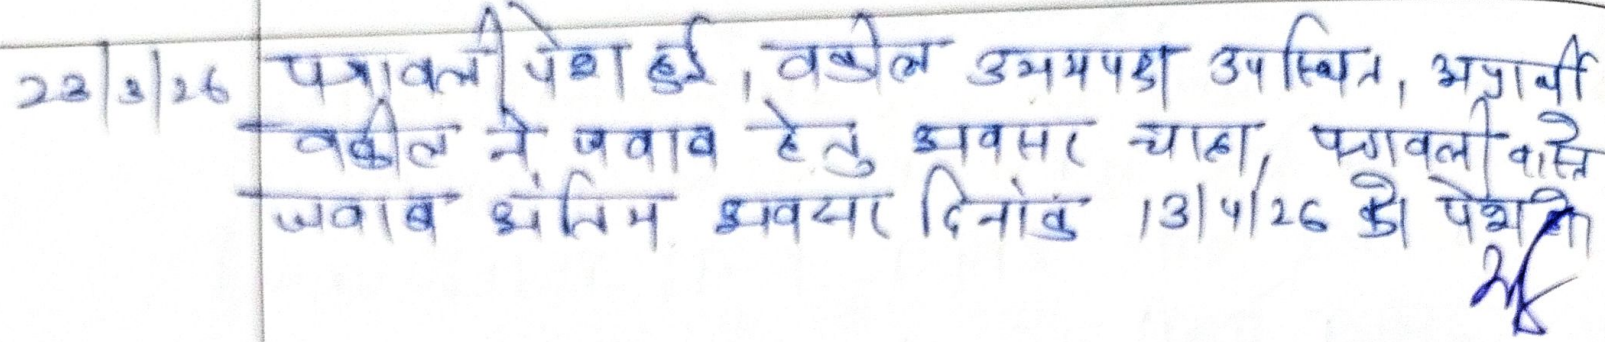 23/3/26 पत्रावली पेश हुई, वकील उभयपक्ष उपस्थित, अप्रार्थी
वकील ने जवाब हेतु अवसर चाहा, पत्रावली वास्ते
जवाब अंतिम अवसर दिनांक 13/4/26 को पेश हो